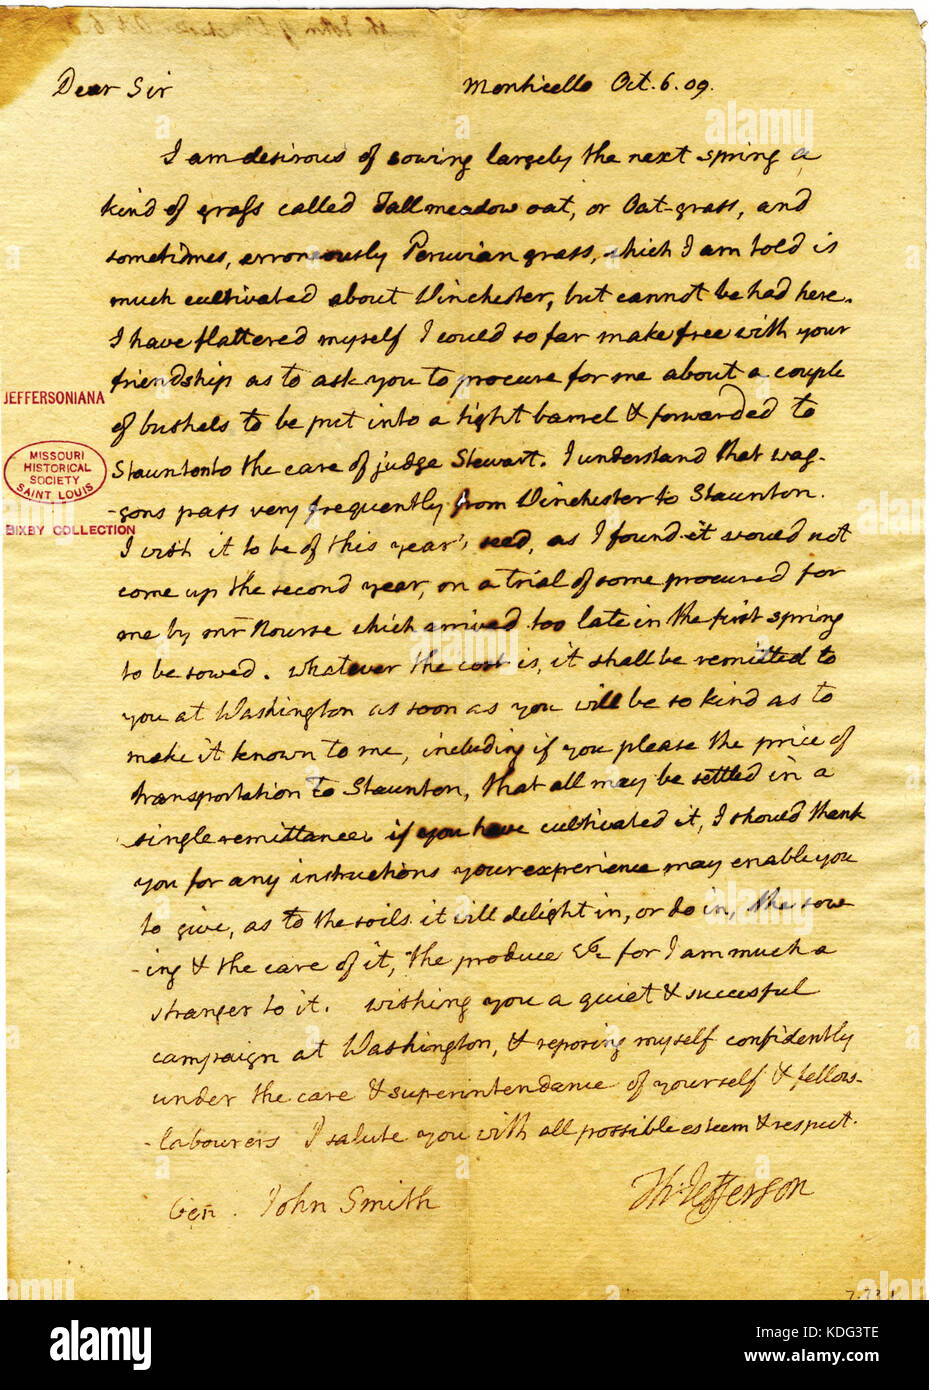 Dear Sir Monticello Oct. 6. 09.
I am desirous of sowing largely the next spring a
kind of grass called Tall meadow oat, or Oat-grass, and
sometimes, erroneously Peruvian grass, which I am told is
much cultivated about Winchester, but cannot be had here.
I have flattered myself I could so far make free with your
friendship as to ask you to procure for me about a couple
of bushels to be put into a tight barrel & forwarded to
Staunton to the care of judge Stewart. I understand that wag-
-gons pass very frequently from Winchester to Staunton.
I wish it to be of this year's seed, as I found it would not
come up the second year, on a trial of some procured for
me by mr Nourse which arrived too late in the first spring
to be sowed. whatever the cost is, it shall be remitted to
you at Washington as soon as you will be so kind as to
make it known to me, including if you please the price of
transportation to Staunton, that all may be settled in a
single remittance. if you have cultivated it, I should thank
you for any instructions your experience may enable you
to give, as to the soils it will delight in, or do in, the sow
-ing & the care of it, the produce &c for I am much a
stranger to it. wishing you a quiet & succesful
campaign at Washington, & reposing myself confidently
under the care & superintendance of yourself & fellow-
-labourers I salute you with all possible esteem & respect.
Th: Jefferson
Gen. John Smith
JEFFERSONIANA
MISSOURI
HISTORICAL
SOCIETY
SAINT LOUIS
BIXBY COLLECTION
alamy
www.alamy.com
KDG3TE